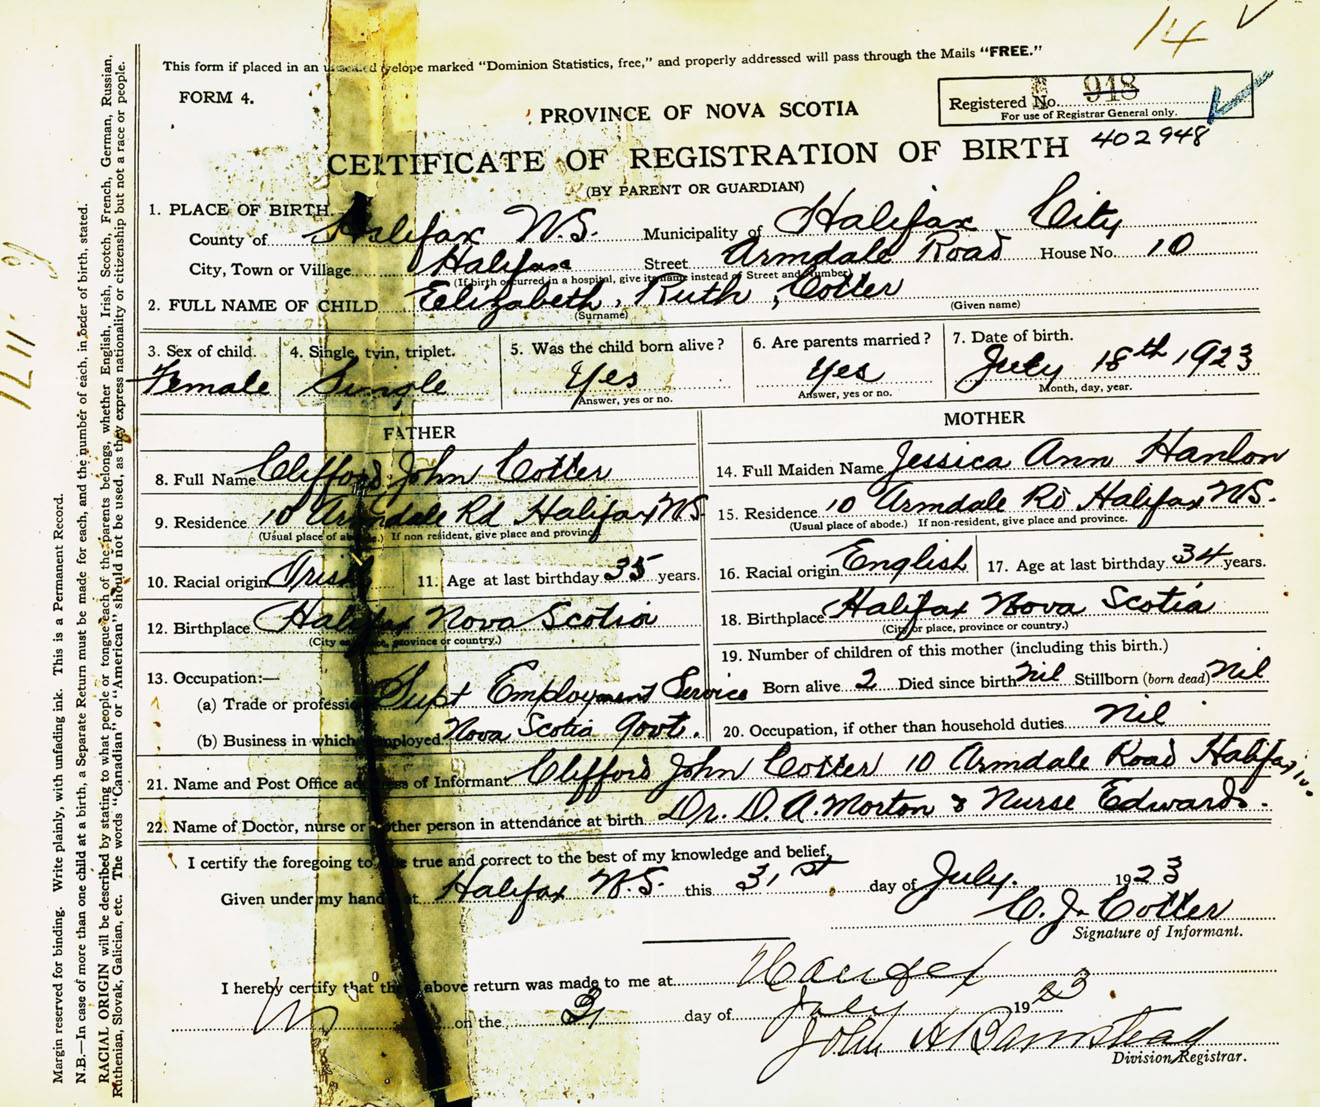 14 ✓
This form if placed in an unsealed envelope marked "Dominion Statistics, free," and properly addressed will pass through the Mails "FREE."
FORM 4.
PROVINCE OF NOVA SCOTIA
Registered No. 948
For use of Registrar General only.
402948
CERTIFICATE OF REGISTRATION OF BIRTH
(BY PARENT OR GUARDIAN)
1. PLACE OF BIRTH.
County of Halifax N.S. Municipality of Halifax City
City, Town or Village Halifax Street Armdale Road House No. 10
(If birth occurred in a hospital, give its name instead of Street and Number)
2. FULL NAME OF CHILD Eelizabeth, Ruth, Cotter
(Surname) (Given name)
3. Sex of child. 4. Single, twin, triplet. 5. Was the child born alive? 6. Are parents married? 7. Date of birth.
Female Single Yes Yes July 18th 1923
Answer, yes or no. Answer, yes or no. Month, day, year.
FATHER MOTHER
8. Full Name Clifford John Cotter
9. Residence 10 Armdale Rd Halifax N.S.
(Usual place of abode.) If non resident, give place and province.
10. Racial origin Irish 11. Age at last birthday 35 years.
12. Birthplace Halifax Nova Scotia
(City or place, province or country.)
13. Occupation:—
(a) Trade or profession Supt Employment Service
(b) Business in which employed Nova Scotia Govt.
14. Full Maiden Name Jessica Ann Hanlon
15. Residence 10 Armdale Rd Halifax N.S.
(Usual place of abode.) If non-resident, give place and province.
16. Racial origin English 17. Age at last birthday 34 years.
18. Birthplace Halifax Nova Scotia
(City or place, province or country.)
19. Number of children of this mother (including this birth.)
Born alive 2 Died since birth Nil Stillborn (born dead) Nil
20. Occupation, if other than household duties Nil
21. Name and Post Office address of Informant Clifford John Cotter 10 Armdale Road Halifax
22. Name of Doctor, nurse or other person in attendance at birth Dr. D. A. Morton & Nurse Edwards.
I certify the foregoing to be true and correct to the best of my knowledge and belief,
Given under my hand at Halifax N.S. this 31st day of July. 1923
C. J. Cotter
Signature of Informant.
I hereby certify that the above return was made to me at Halifax
on the 31 day of July 1923
John A Barnstead
Division Registrar.
Margin reserved for binding. Write plainly, with unfading ink. This is a Permanent Record.
N.B.—In case of more than one child at a birth, a Separate Return must be made for each, and the number of each, in order of birth, stated.
RACIAL ORIGIN will be described by stating to what people or tongue each of the parents belongs, whether English, Irish, Scotch, French, German, Russian,
Ruthenian, Slovak, Galician, etc. The words "Canadian" or "American" should not be used, as they express nationality or citizenship but not a race or people.